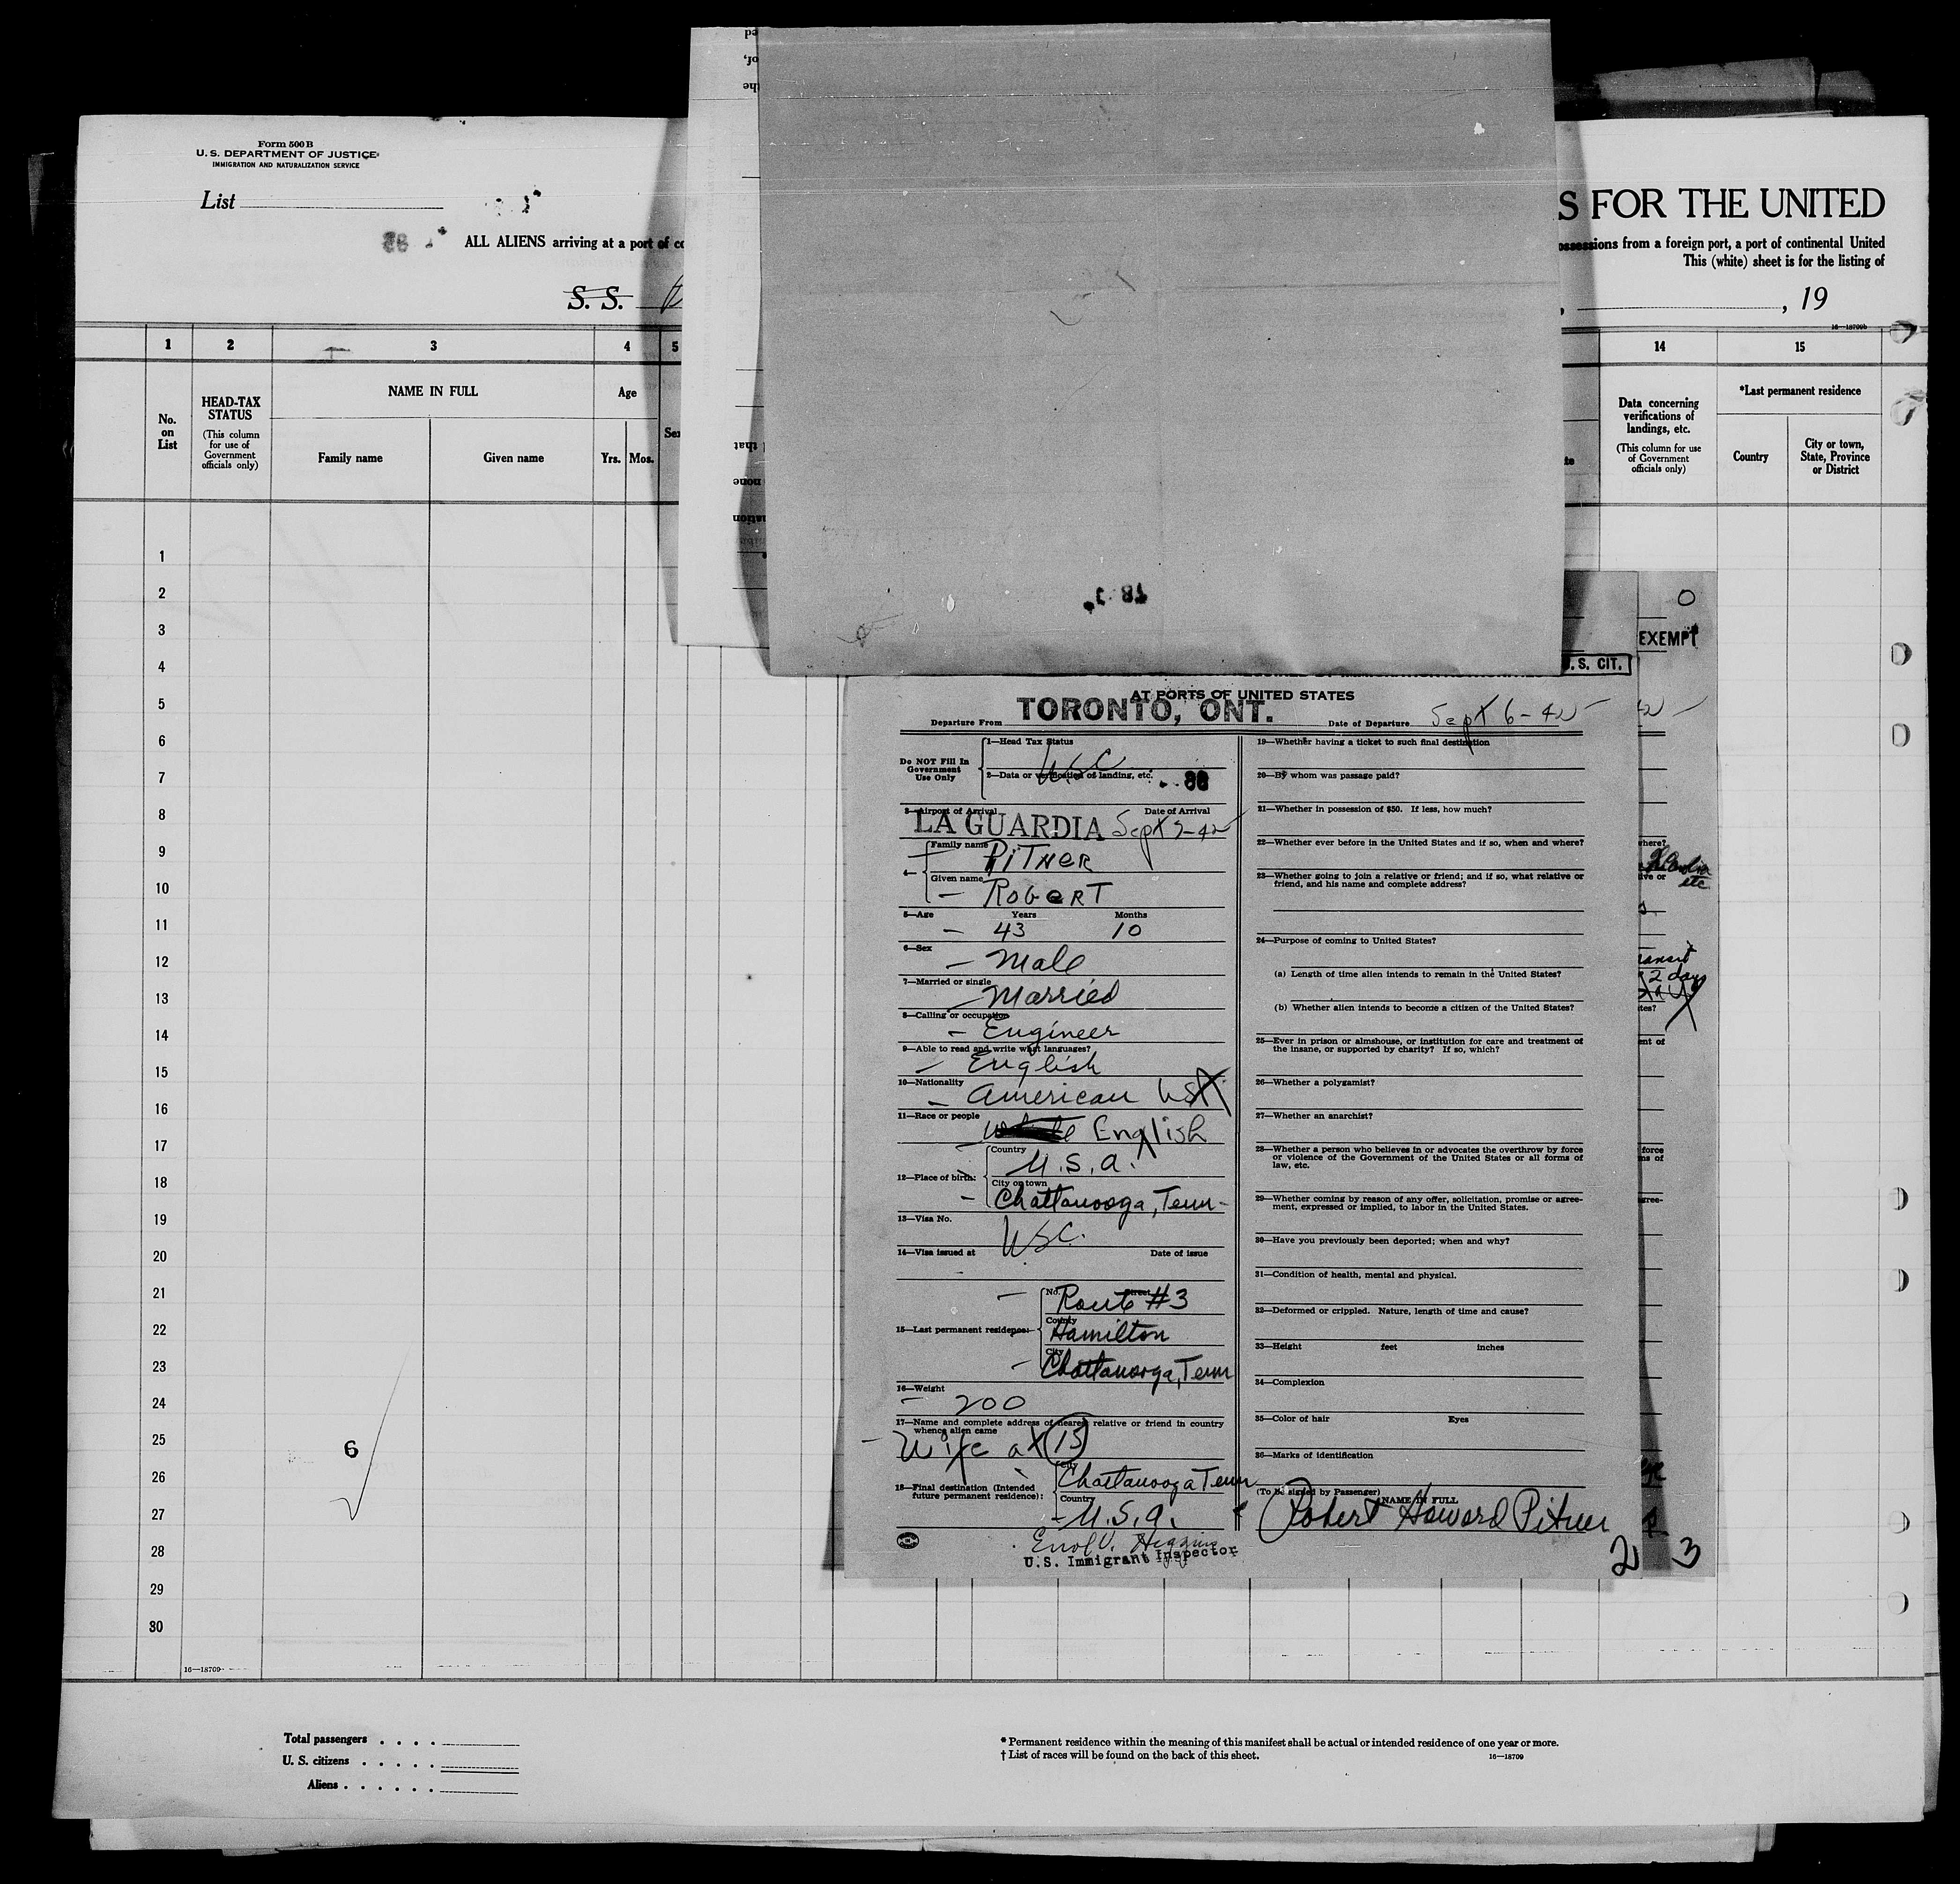 Form 500 B
U. S. DEPARTMENT OF JUSTICE
IMMIGRATION AND NATURALIZATION SERVICE
List
S FOR THE UNITED
ALL ALIENS arriving at a port of
ossessions from a foreign port, a port of continental United
This (white) sheet is for the listing of
S. S.
, 19
16—18709b
1 2 3 4 5 14 15
No. on List
HEAD-TAX STATUS
(This column for use of Government officials only)
NAME IN FULL
Family name
Given name
Age
Yrs. Mos.
Sex
Data concerning verifications of landings, etc.
(This column for use of Government officials only)
*Last permanent residence
Country
City or town, State, Province or District
1
2
3
4
5
6
7
8
9
10
11
12
13
14
15
16
17
18
19
20
21
22
23
24
25
26
27
28
29
30
6
16—18709
0
EXEMPT
U.S. CIT.
AT PORTS OF UNITED STATES
Departure From TORONTO, ONT. Date of Departure Sept 6-42
Do NOT Fill In
Government
Use Only
1—Head Tax Status
USC
2—Data or verification of landing, etc. 88
3—Airport of Arrival Date of Arrival
LA GUARDIA Sept 7-42
4—
Family name PITNER
Given name ROBERT
5—Age Years Months
43 10
6—Sex
Male
7—Married or single
Married
8—Calling or occupation
Engineer
9—Able to read and write what languages?
English
10—Nationality
American
11—Race or people
English
12—Place of birth:
Country
U.S.A.
City or town
Chattanooga, Tenn-
13—Visa No.
USC.
14—Visa issued at Date of issue
15—Last permanent residence:
No. Street
Route #3
County
Hamilton
City
Chattanooga, Tenn
16—Weight
200
17—Name and complete address of nearest relative or friend in country
whence alien came
Wife at 15
18—Final destination (Intended
future permanent residence):
City
Chattanooga Tenn
Country
U.S.A.
U.S. Immigrant Inspector
19—Whether having a ticket to such final destination
20—By whom was passage paid?
21—Whether in possession of $50. If less, how much?
22—Whether ever before in the United States and if so, when and where?
23—Whether going to join a relative or friend; and if so, what relative or
friend, and his name and complete address?
24—Purpose of coming to United States?
(a) Length of time alien intends to remain in the United States?
(b) Whether alien intends to become a citizen of the United States?
25—Ever in prison or almshouse, or institution for care and treatment of
the insane, or supported by charity? If so, which?
26—Whether a polygamist?
27—Whether an anarchist?
28—Whether a person who believes in or advocates the overthrow by force
or violence of the Government of the United States or all forms of
law, etc.
29—Whether coming by reason of any offer, solicitation, promise or agree-
ment, expressed or implied, to labor in the United States.
30—Have you previously been deported; when and why?
31—Condition of health, mental and physical.
32—Deformed or crippled. Nature, length of time and cause?
33—Height feet inches
34—Complexion
35—Color of hair Eyes
36—Marks of identification
(To be signed by Passenger) NAME IN FULL
Robert Howard Pitner
2 3
2 days
Total passengers
U. S. citizens
Aliens
* Permanent residence within the meaning of this manifest shall be actual or intended residence of one year or more.
† List of races will be found on the back of this sheet.
16—18709